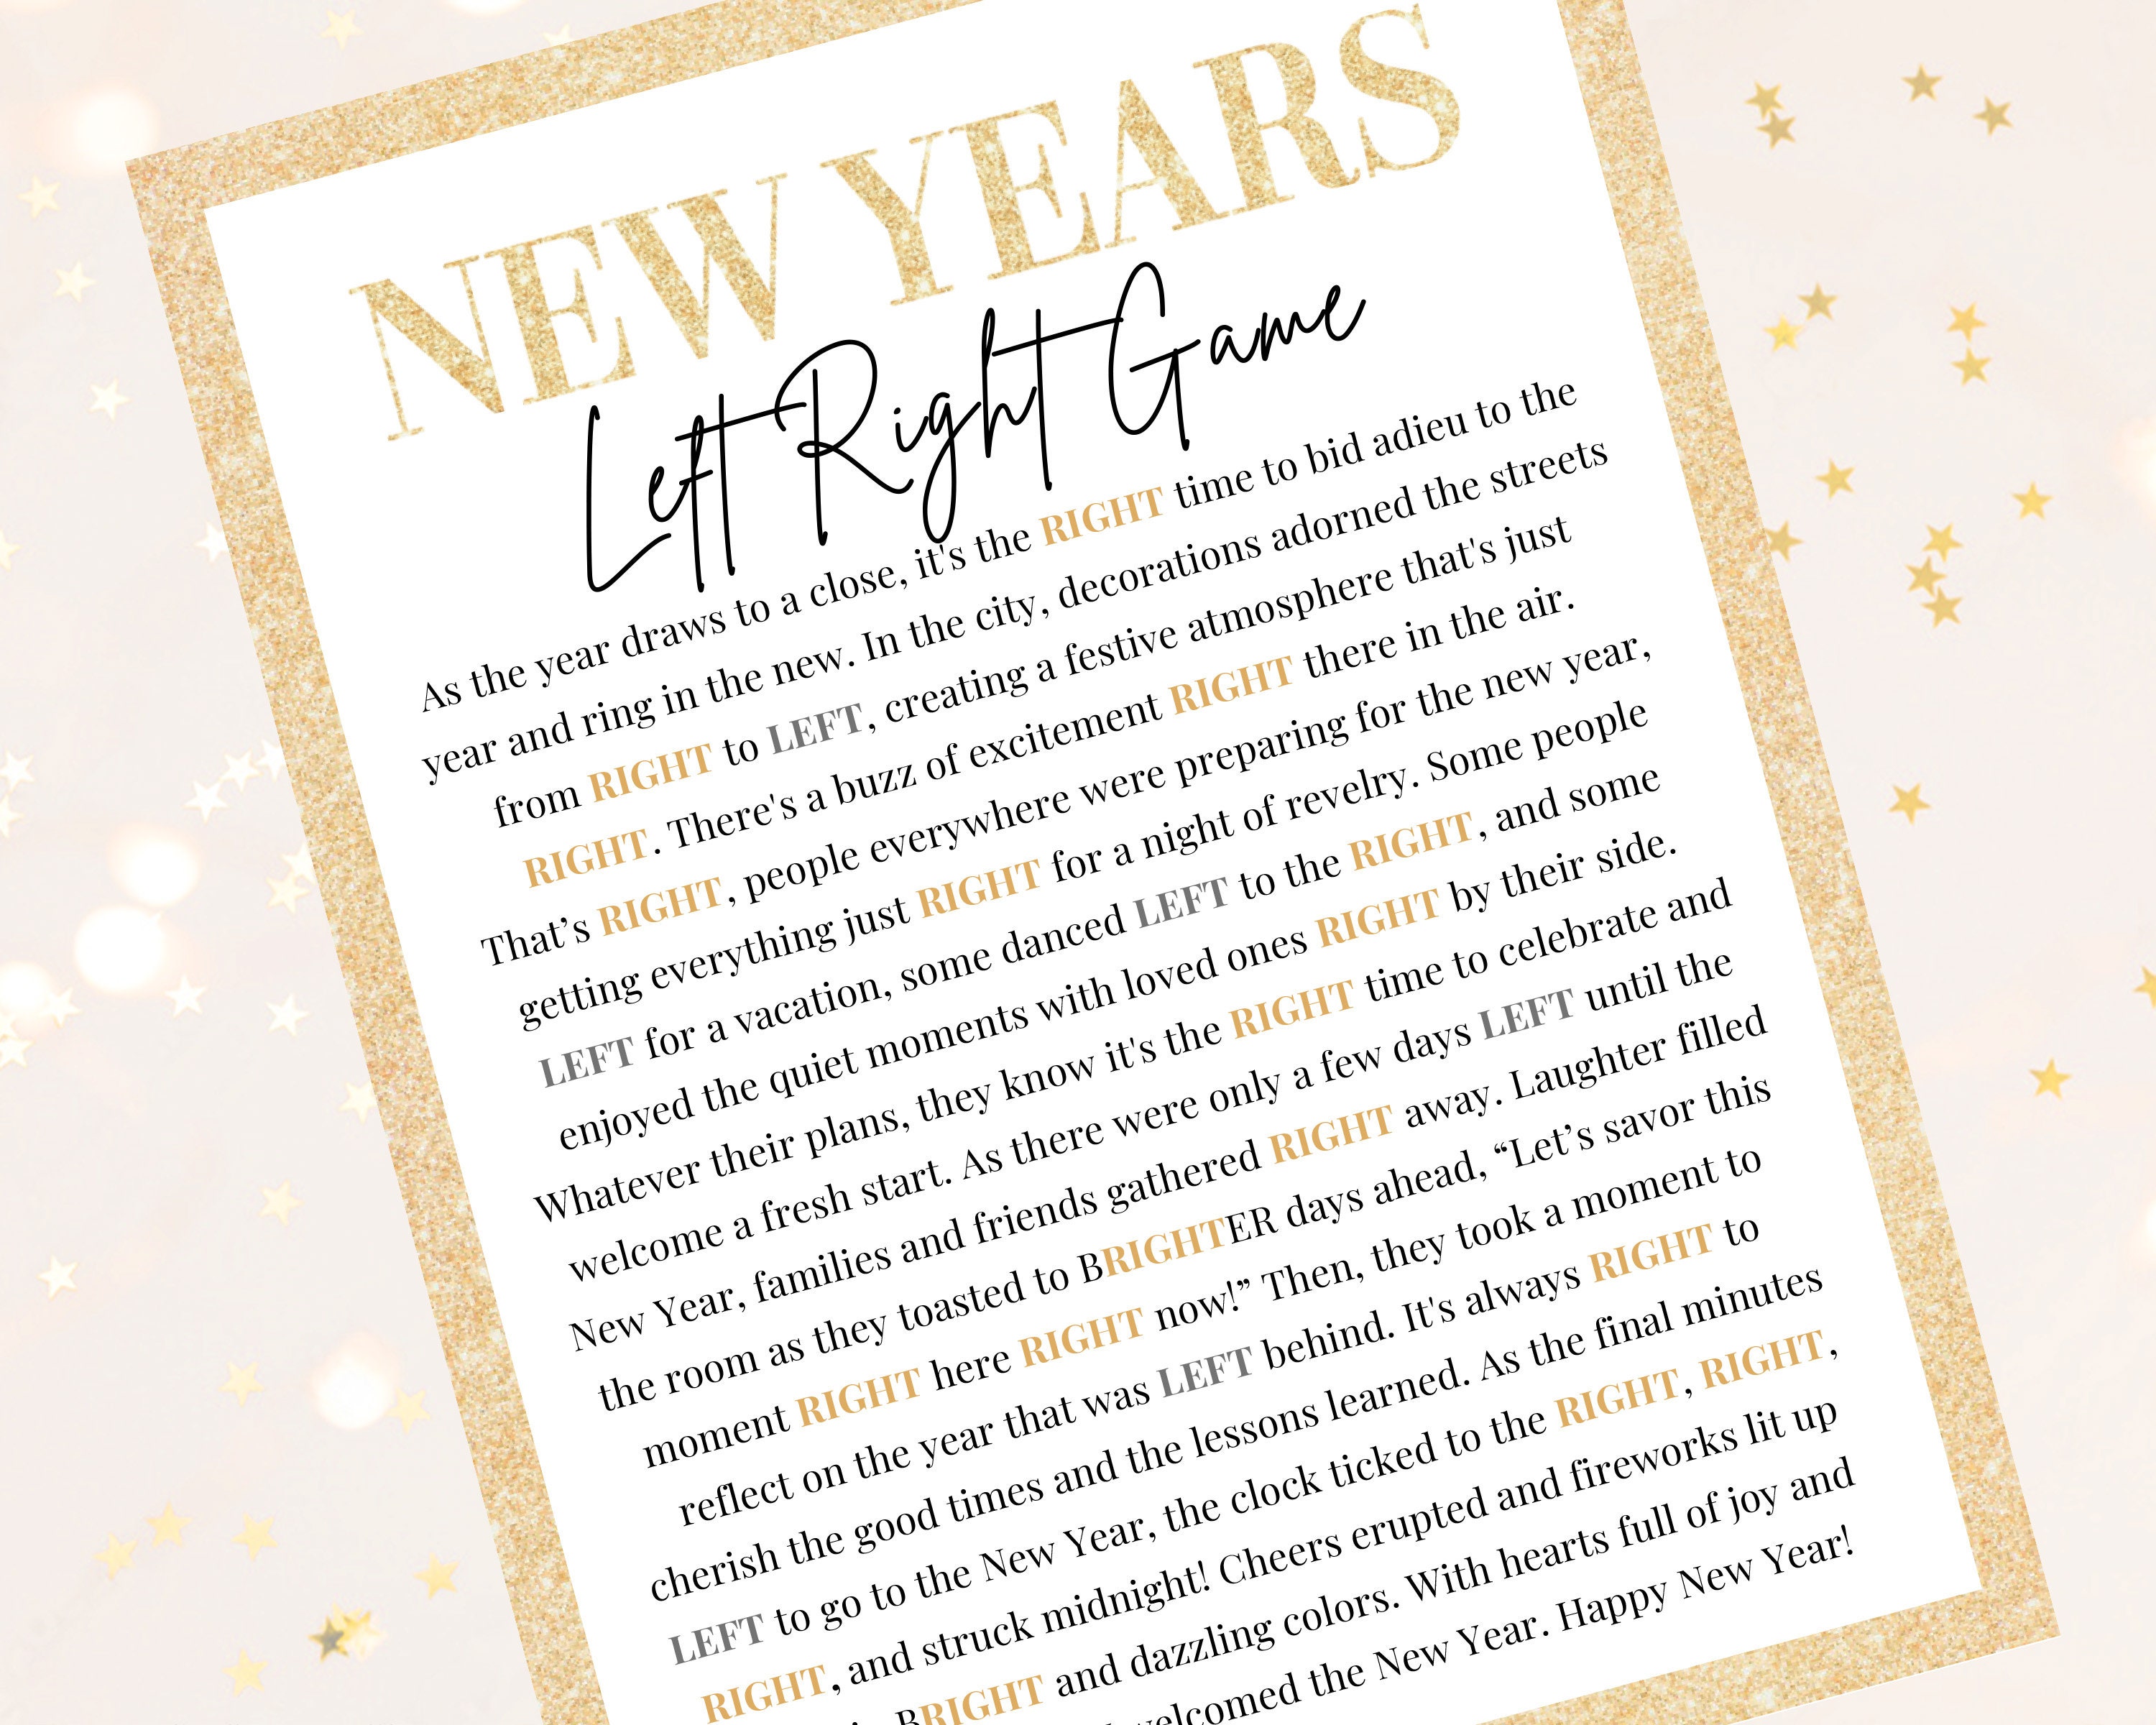 NEW YEARS
Left Right Game
As the year draws to a close, it's the RIGHT time to bid adieu to the
year and ring in the new. In the city, decorations adorned the streets
from RIGHT to LEFT, creating a festive atmosphere that's just
RIGHT. There's a buzz of excitement RIGHT there in the air.
That’s RIGHT, people everywhere were preparing for the new year,
getting everything just RIGHT for a night of revelry. Some people
LEFT for a vacation, some danced LEFT to the RIGHT, and some
enjoyed the quiet moments with loved ones RIGHT by their side.
Whatever their plans, they know it's the RIGHT time to celebrate and
welcome a fresh start. As there were only a few days LEFT until the
New Year, families and friends gathered RIGHT away. Laughter filled
the room as they toasted to BRIGHTER days ahead, “Let’s savor this
moment RIGHT here RIGHT now!” Then, they took a moment to
reflect on the year that was LEFT behind. It's always RIGHT to
cherish the good times and the lessons learned. As the final minutes
LEFT to go to the New Year, the clock ticked to the RIGHT, RIGHT,
RIGHT, and struck midnight! Cheers erupted and fireworks lit up
BRIGHT and dazzling colors. With hearts full of joy and
welcomed the New Year. Happy New Year!